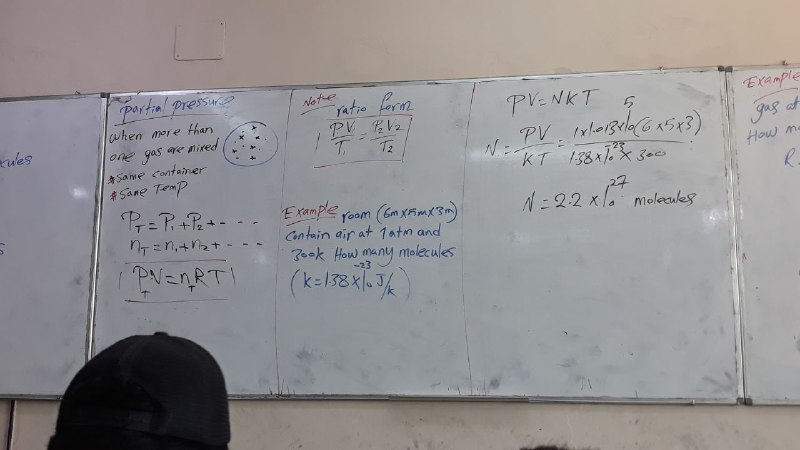 cules
s
partial pressure
when more than
one gas are mixed
* same container
* same Temp
P_T = P₁ + P₂ + - - -
n_T = n₁ + n₂ + - - -
P_T V = n_T RT
Note
ratio form
PV₁/T₁ = P₂V₂/T₂
Example room (6m x 5m x 3m)
contain air at 1 atm and
300k How many molecules
(k = 1.38 x 10⁻²³ J/k)
PV = NKT
N = PV/KT = 1 x 1.013 x 10⁵ (6 x 5 x 3) / 1.38 x 10⁻²³ x 300
N = 2.2 x 10²⁷ molecules
Example
gas at
How mo
R